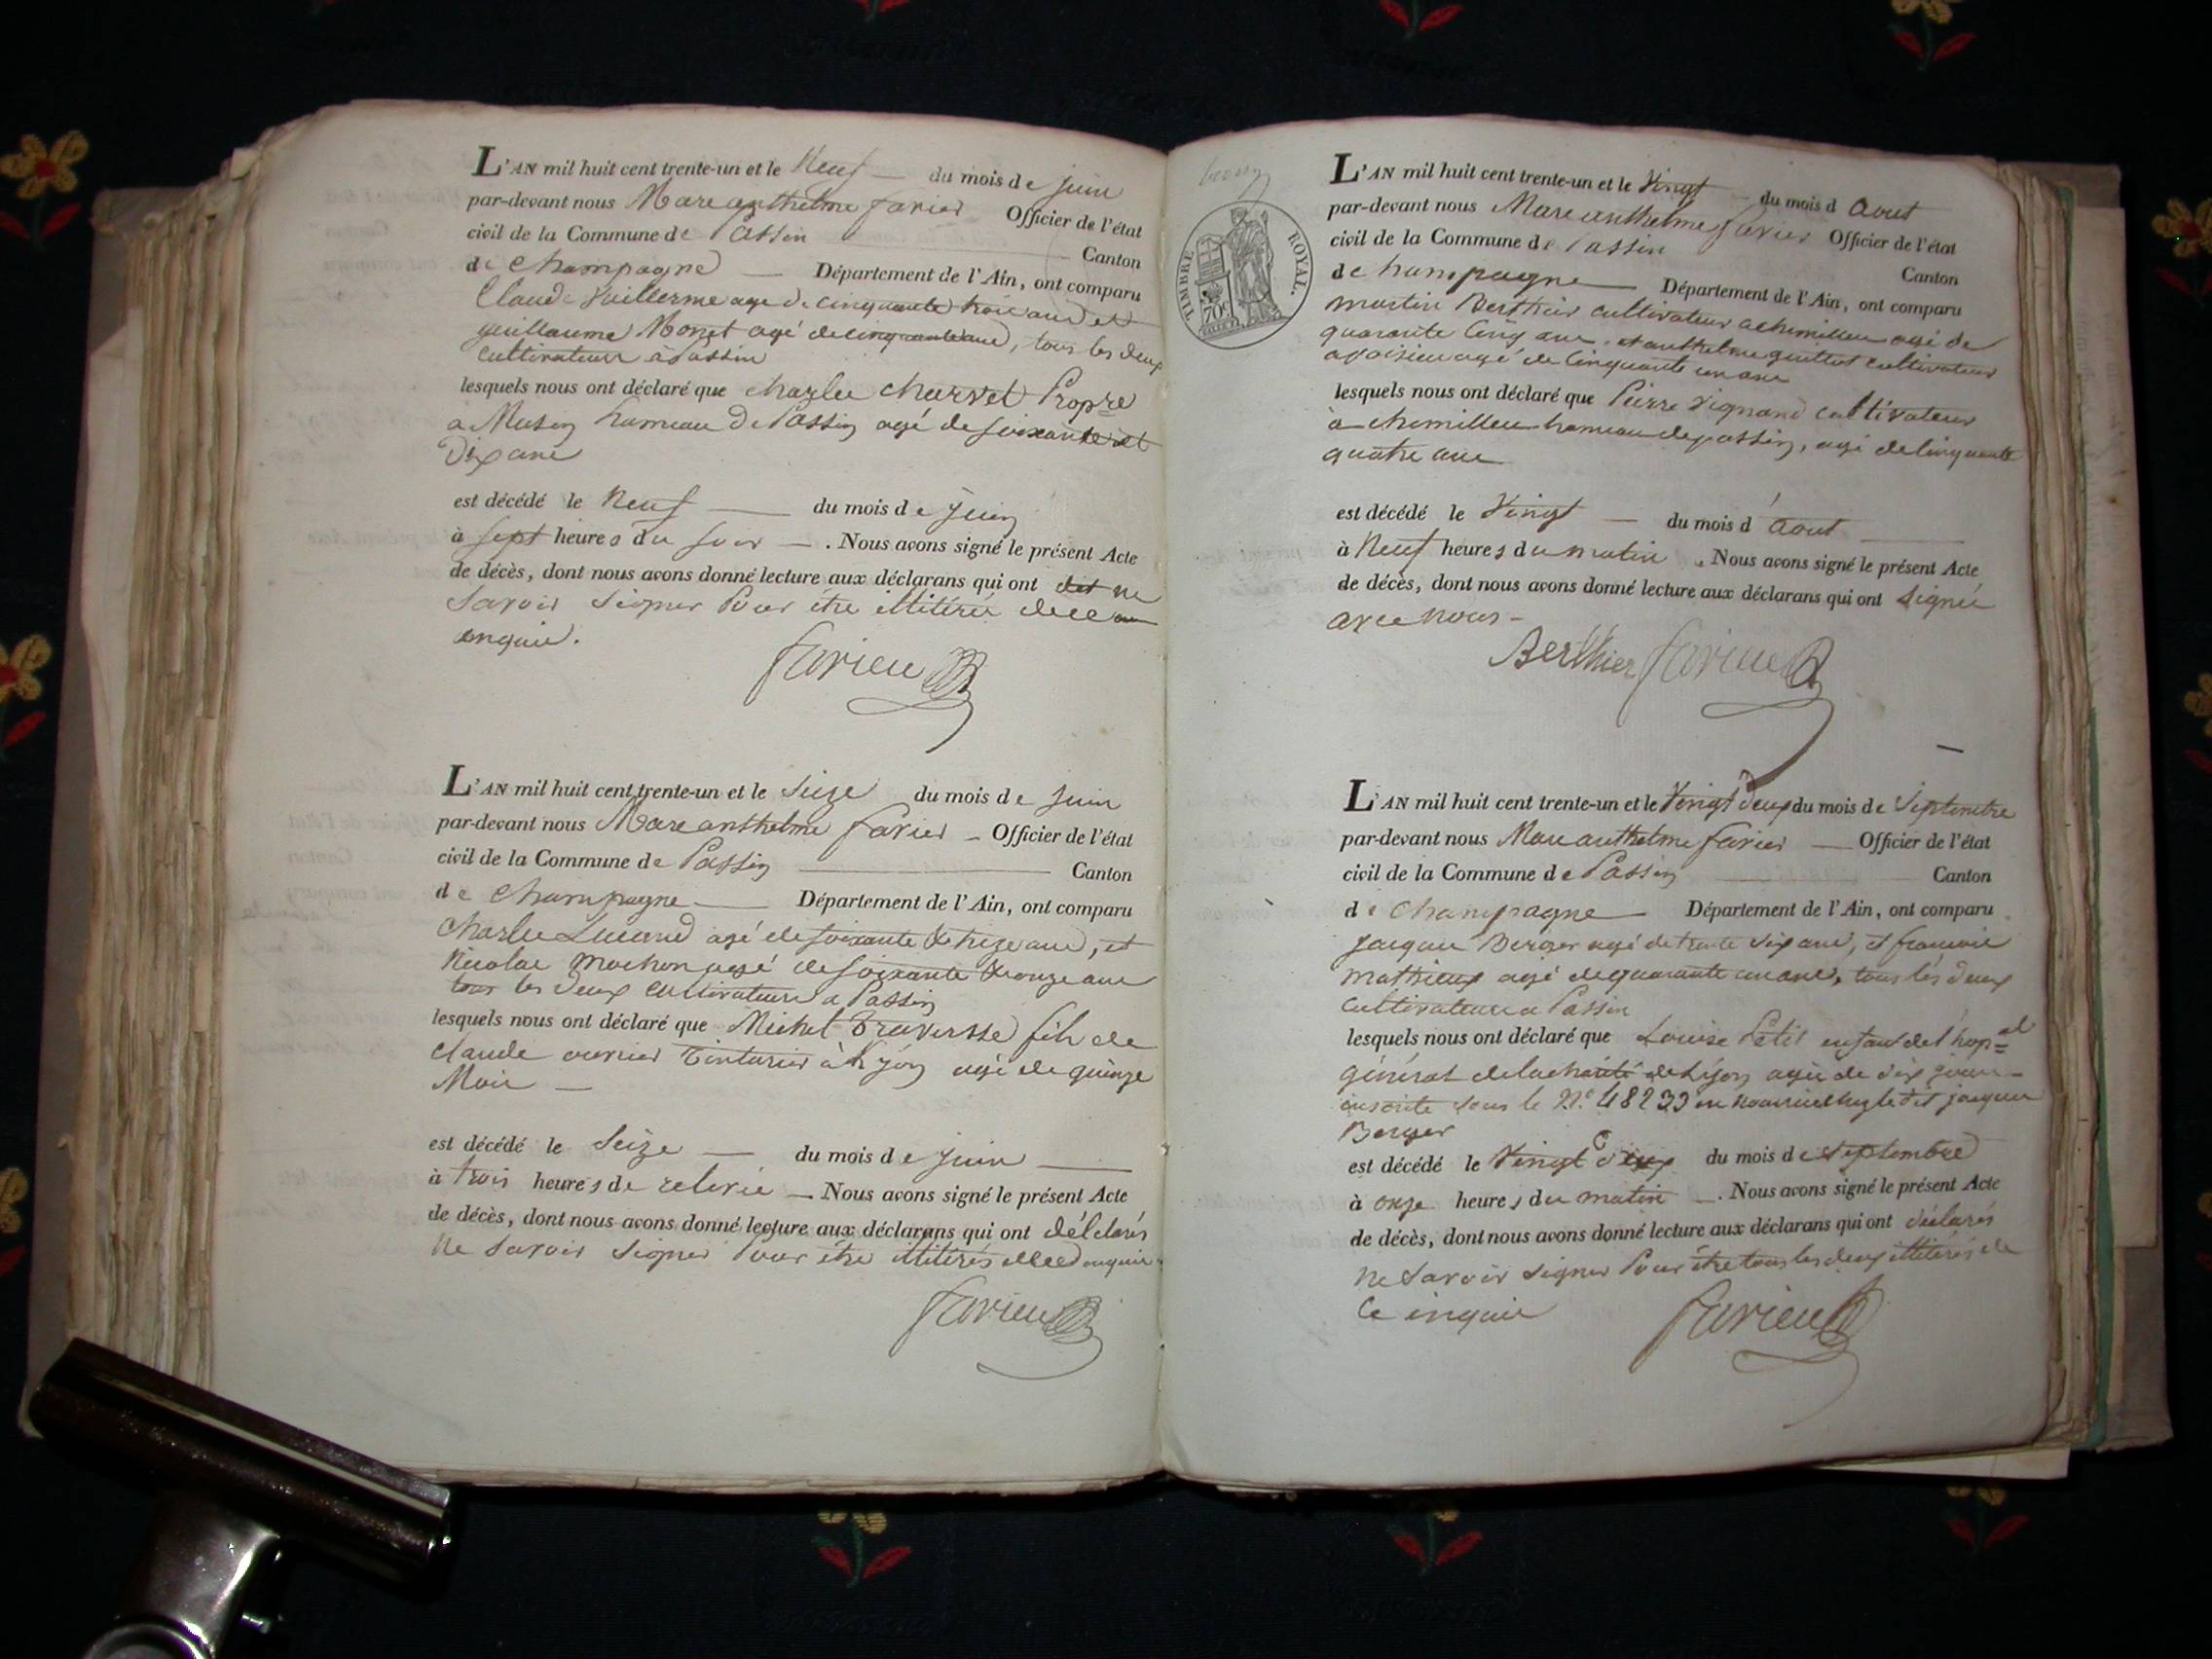 L'AN mil huit cent trente-un et le Neuf du mois de juin
par-devant nous Marc anthelme favier Officier de l'état
civil de la Commune de Passin Canton
de Champagne Département de l'Ain, ont comparu
Claude Vuillerme age de cinquante trois ans et
guillaume Monet agé de cinquante ans, tous les deux
cultivateurs à Passin
lesquels nous ont déclaré que charles charvet Propre
a Musin hameau de Passin agé de soixante et
Dix ans
est décédé le Neuf du mois de juin
à sept heures du soir . Nous avons signé le présent Acte
de décès, dont nous avons donné lecture aux déclarans qui ont dit ne
savoir signer Pour étre illitérés de ce
enquis.
favier
L'AN mil huit cent trente-un et le Seize du mois de juin
par-devant nous Marc anthelme favier Officier de l'état
civil de la Commune de Passin Canton
de Champagne Département de l'Ain, ont comparu
Charles agé de soixante & treize ans, et
Nicolas mochon agé de soixante & onze ans
tous les deux cultivateurs a Passin
lesquels nous ont déclaré que Michel Traversse fils de
claude ouvrier Tinturier à Lyon agé de quinze
Mois
est décédé le Seize du mois de juin
à trois heures de relevée Nous avons signé le présent Acte
de décès, dont nous avons donné lecture aux déclarans qui ont déclarés
ne savoir signer Pour étre illitérés de ce enquis
favier
TIMBRE ROYAL.
70c
L'AN mil huit cent trente-un et le Vingt du mois d aout
par-devant nous Marc anthelme favier Officier de l'état
civil de la Commune de Passin Canton
de hampagne Département de l'Ain, ont comparu
martin Berthier cultivateur a chemilleu agé de
quarante Cinq ans et anthelme guillot cultivateur
a poisieu agé de Cinquante un ans
lesquels nous ont déclaré que Pierre Vignand cultivateur
à chemilleu hameau de passin, agé de Cinquante
quatre ans
est décédé le Vingt du mois d aout
à Neuf heures du matin . Nous avons signé le présent Acte
de décès, dont nous avons donné lecture aux déclarans qui ont signés
avec nous
Berthier favier
L'AN mil huit cent trente-un et le Vingt deux du mois de Septembre
par-devant nous Marc anthelme favier Officier de l'état
civil de la Commune de Passin Canton
de Champagne Département de l'Ain, ont comparu
jacques Berger agé de trente six ans, et françois
mathieux agé de quarante un ans, tous les deux
cultivateurs a Passin
lesquels nous ont déclaré que Louise Petit enfant de l'hopal
général de la charité de Lyon agée de dix jours
inscrite sous le N° 48233 en nourrice chez le dit jacques
Berger
est décédé le Vingt deux du mois de Septembre
à onze heures du matin . Nous avons signé le présent Acte
de décès, dont nous avons donné lecture aux déclarans qui ont déclarés
ne savoir signer Pour étre tous les deux illitérés de
Ce enquis
favier